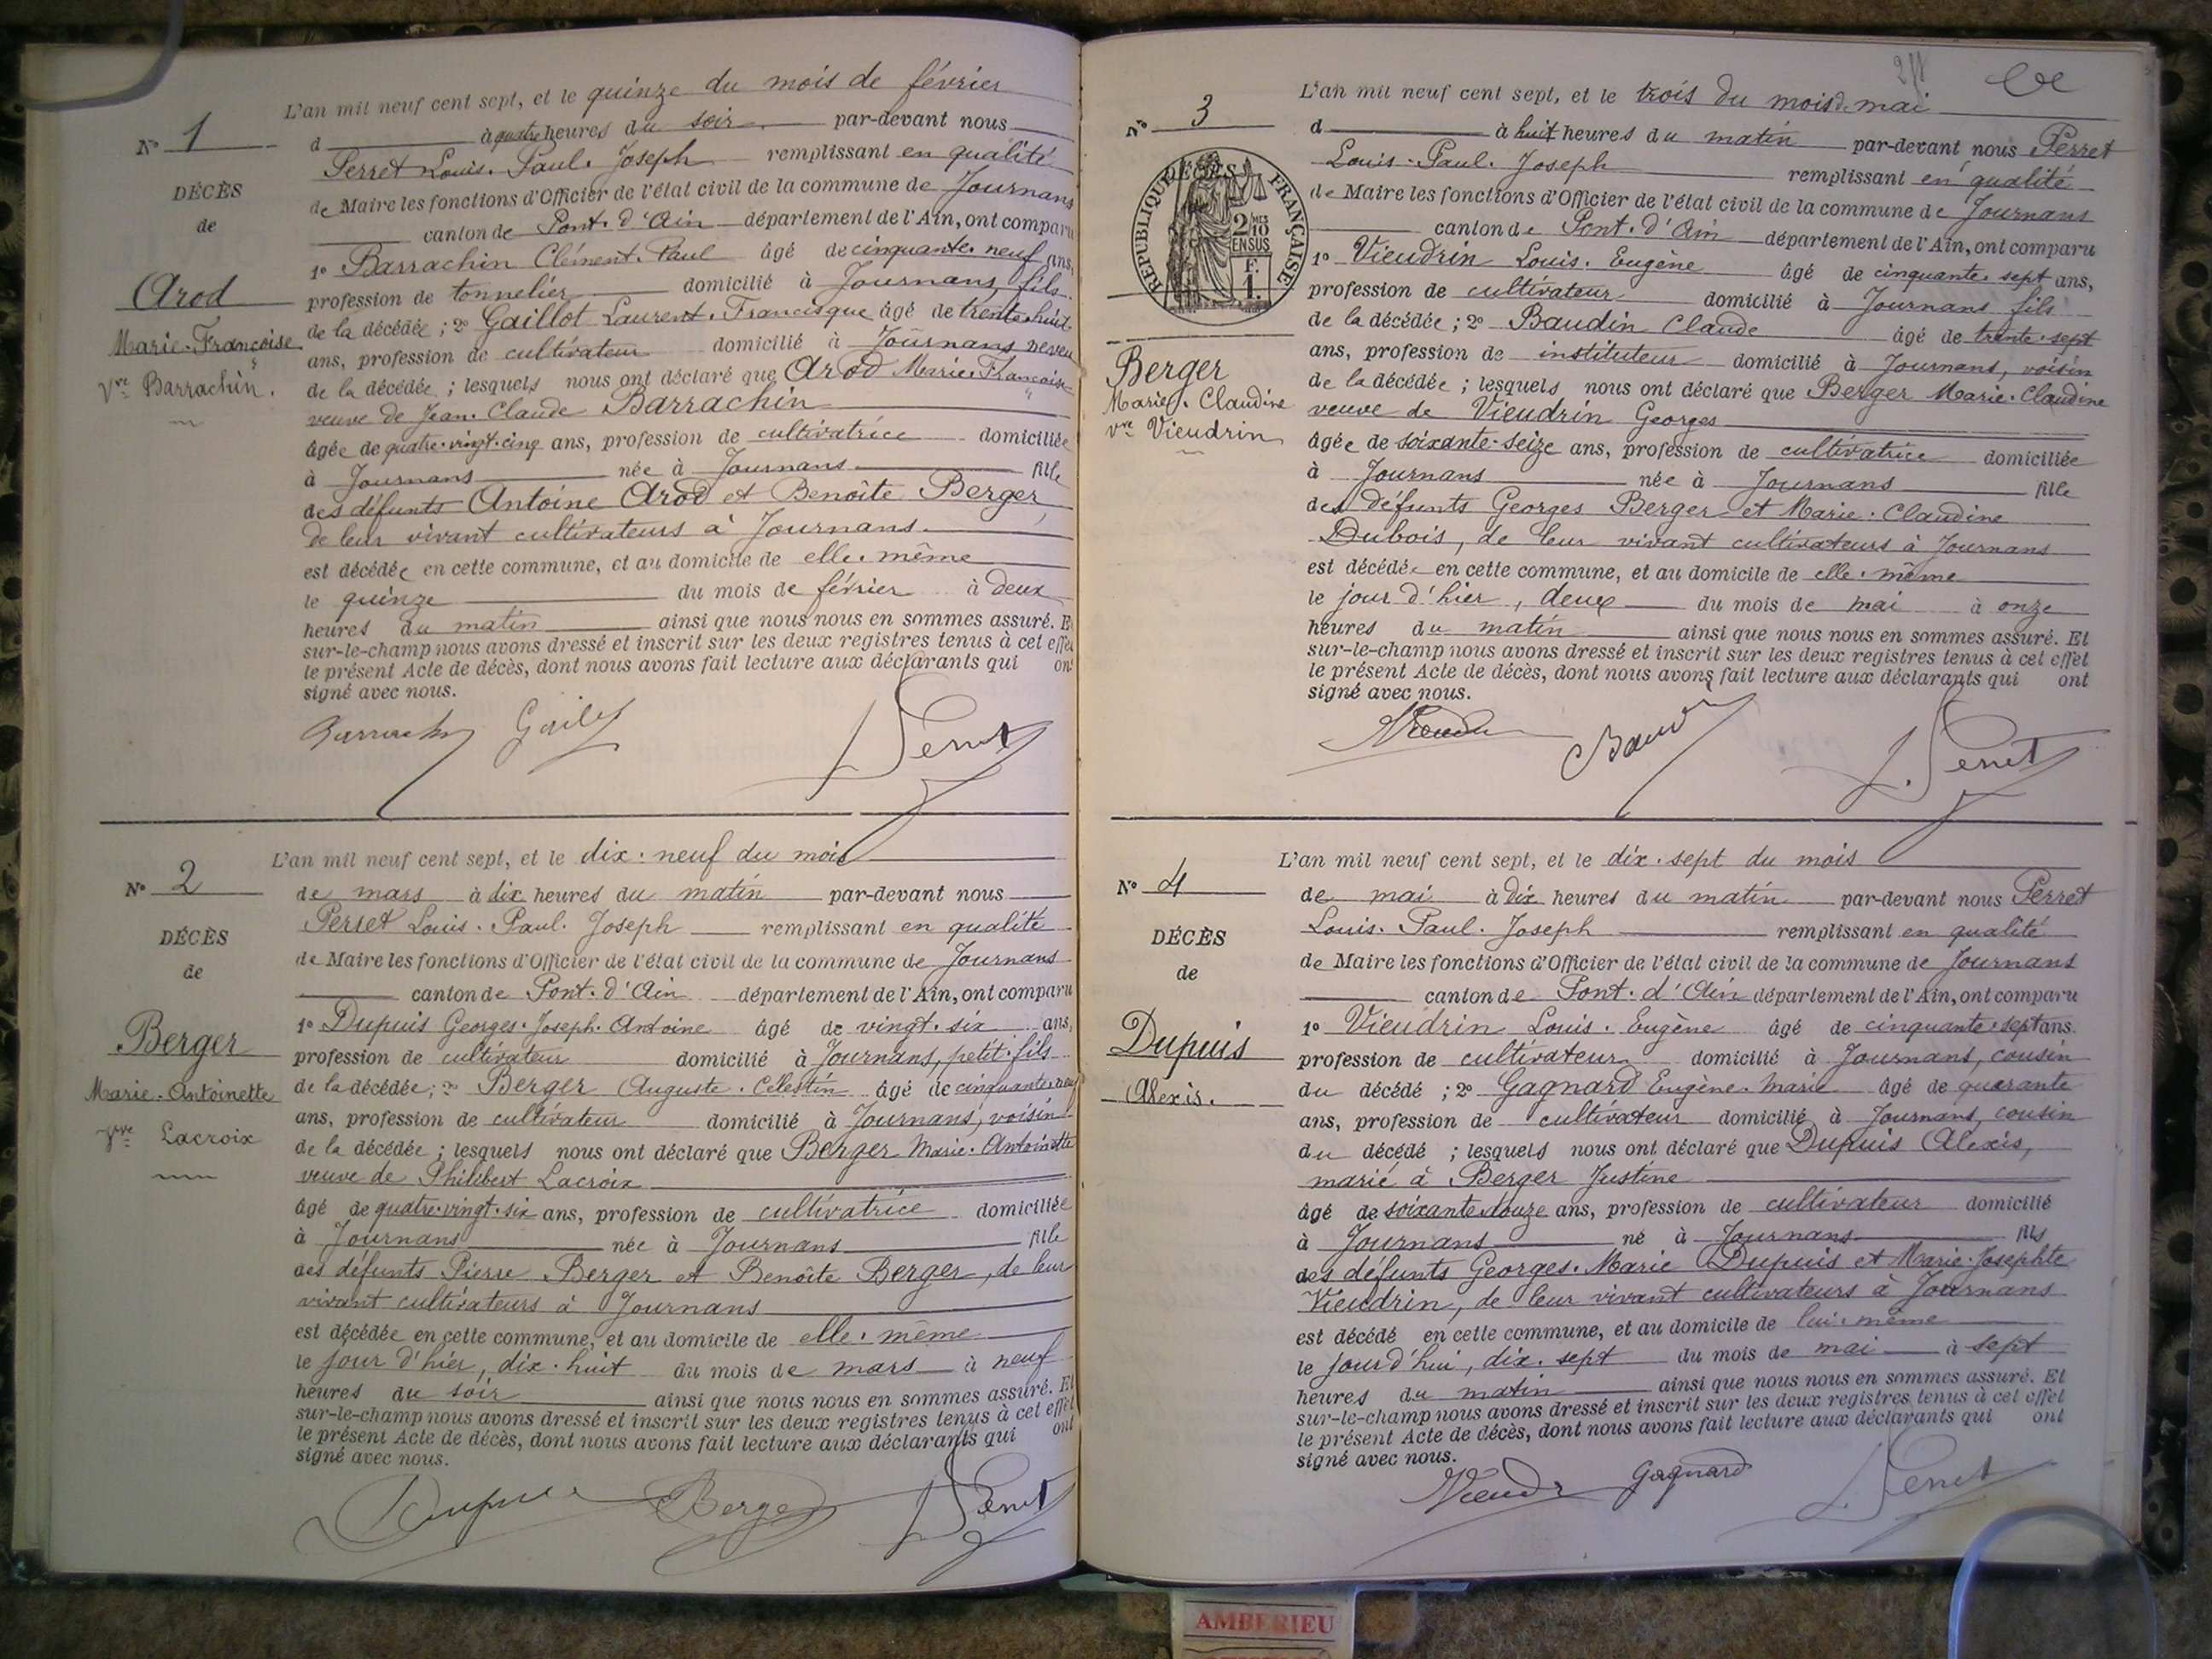 L'an mil neuf cent sept, et le quinze du mois de février
N° 1
d à quatre heures du soir par-devant nous
Perret Louis-Paul-Joseph remplissant en qualité
DÉCÈS
de Maire les fonctions d'Officier de l'état civil de la commune de Journans
de
canton de Pont-d'Ain département de l'Ain, ont comparu
1° Barrachin Clément-Paul âgé de cinquante-neuf ans,
Arod
profession de tonnelier domicilié à Journans, fils
de la décédée ; 2° Gaillot Laurent-Francisque âgé de trente-huit
Marie-Françoise
ans, profession de cultivateur domicilié à Journans neveu
Vve Barrachin.
de la décédée ; lesquels nous ont déclaré que Arod Marie-Françoise
veuve de Jean-Claude Barrachin
âgée de quatre-vingt-cinq ans, profession de cultivatrice domiciliée
à Journans née à Journans fille
des défunts Antoine Arod et Benoîte Berger,
de leur vivant cultivateurs à Journans.
est décédée en cette commune, et au domicile de elle-même
le quinze du mois de février à deux
heures du matin ainsi que nous nous en sommes assuré. Et
sur-le-champ nous avons dressé et inscrit sur les deux registres tenus à cet effet
le présent Acte de décès, dont nous avons fait lecture aux déclarants qui ont
signé avec nous.
L. Perret
L'an mil neuf cent sept, et le dix-neuf du mois
N° 2
de mars à dix heures du matin par-devant nous
Perret Louis-Paul-Joseph remplissant en qualité
DÉCÈS
de Maire les fonctions d'Officier de l'état civil de la commune de Journans
de
canton de Pont-d'Ain département de l'Ain, ont comparu
1° Dupuis Georges-Joseph-Antoine âgé de vingt-six ans,
Berger
profession de cultivateur domicilié à Journans, petit-fils
Marie-Antoinette
de la décédée ; 2° Berger Auguste-Célestin âgé de cinquante-neuf
ans, profession de cultivateur domicilié à Journans, voisin
Vve Lacroix
de la décédée ; lesquels nous ont déclaré que Berger Marie-Antoinette
veuve de Philibert Lacroix
âgé de quatre-vingt-six ans, profession de cultivatrice domiciliée
à Journans née à Journans fille
des défunts Pierre Berger et Benoîte Berger, de leur
vivant cultivateurs à Journans
est décédée en cette commune, et au domicile de elle-même
le jour d'hier, dix-huit du mois de mars à neuf
heures du soir ainsi que nous nous en sommes assuré. Et
sur-le-champ nous avons dressé et inscrit sur les deux registres tenus à cet effet
le présent Acte de décès, dont nous avons fait lecture aux déclarants qui ont
signé avec nous.
Dupuis Berger L. Perret
L'an mil neuf cent sept, et le trois du mois de mai
N° 3
d à huit heures du matin par-devant nous Perret
Louis-Paul-Joseph remplissant en qualité
de Maire les fonctions d'Officier de l'état civil de la commune de Journans
RÉPUBLIQUE FRANÇAISE
2/10 EN SUS
F. 1.
canton de Pont-d'Ain département de l'Ain, ont comparu
1° Vieudrin Louis-Eugène âgé de cinquante-sept ans,
profession de cultivateur domicilié à Journans fils
de la décédée ; 2° Baudin Claude âgé de trente-sept
ans, profession de instituteur domicilié à Journans, voisin
Berger
de la décédée ; lesquels nous ont déclaré que Berger Marie-Claudine
Marie-Claudine
veuve de Vieudrin Georges
vve Vieudrin
âgée de soixante-seize ans, profession de cultivatrice domiciliée
à Journans née à Journans fille
des défunts Georges Berger et Marie-Claudine
Dubois, de leur vivant cultivateurs à Journans
est décédée en cette commune, et au domicile de elle-même
le jour d'hier, deux du mois de mai à onze
heures du matin ainsi que nous nous en sommes assuré. Et
sur-le-champ nous avons dressé et inscrit sur les deux registres tenus à cet effet
le présent Acte de décès, dont nous avons fait lecture aux déclarants qui ont
signé avec nous.
L. Perret
L'an mil neuf cent sept, et le dix-sept du mois
N° 4
de mai à dix heures du matin par-devant nous Perret
Louis-Paul-Joseph remplissant en qualité
DÉCÈS
de Maire les fonctions d'Officier de l'état civil de la commune de Journans
de
canton de Pont-d'Ain département de l'Ain, ont comparu
1° Vieudrin Louis-Eugène âgé de cinquante-sept ans.
Dupuis
profession de cultivateur domicilié à Journans, cousin
Alexis.
du décédé ; 2° Gagnard Eugène-Marie âgé de quarante
ans, profession de cultivateur domicilié à Journans, cousin
du décédé ; lesquels nous ont déclaré que Dupuis Alexis,
marié à Berger Justine
âgé de soixante-douze ans, profession de cultivateur domicilié
à Journans né à Journans fils
des défunts Georges-Marie Dupuis et Marie-Josephte
Vieudrin, de leur vivant cultivateurs à Journans
est décédé en cette commune, et au domicile de lui-même
le jour d'hui, dix-sept du mois de mai à sept
heures du matin ainsi que nous nous en sommes assuré. Et
sur-le-champ nous avons dressé et inscrit sur les deux registres tenus à cet effet
le présent Acte de décès, dont nous avons fait lecture aux déclarants qui ont
signé avec nous.
Gagnard L. Perret
AMBERIEU